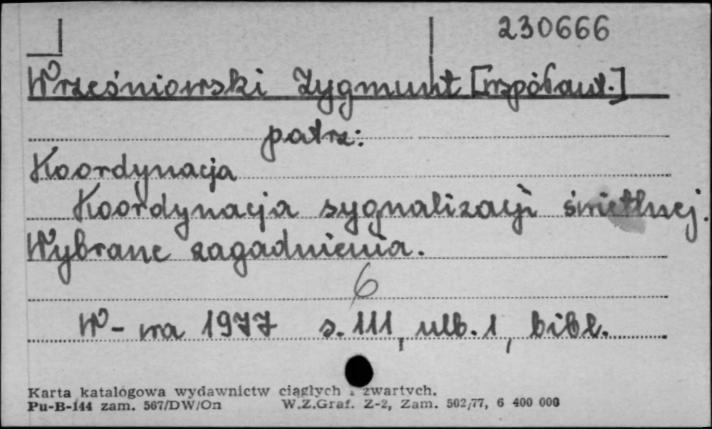 230666
Wrześniowski Zygmunt [współaut.]
patrz:
Koordynacja
Koordynacja sygnalizacji świetlnej.
Wybrane zagadnienia.
6
W-wa 1977 s. 111, ulb. 1, bibl.
Karta katalogowa wydawnictw ciągłych i zwartych.
Pu-B-144 zam. 567/DW/On W.Z.Graf. Z-2, Zam. 502/77, 6 400 000